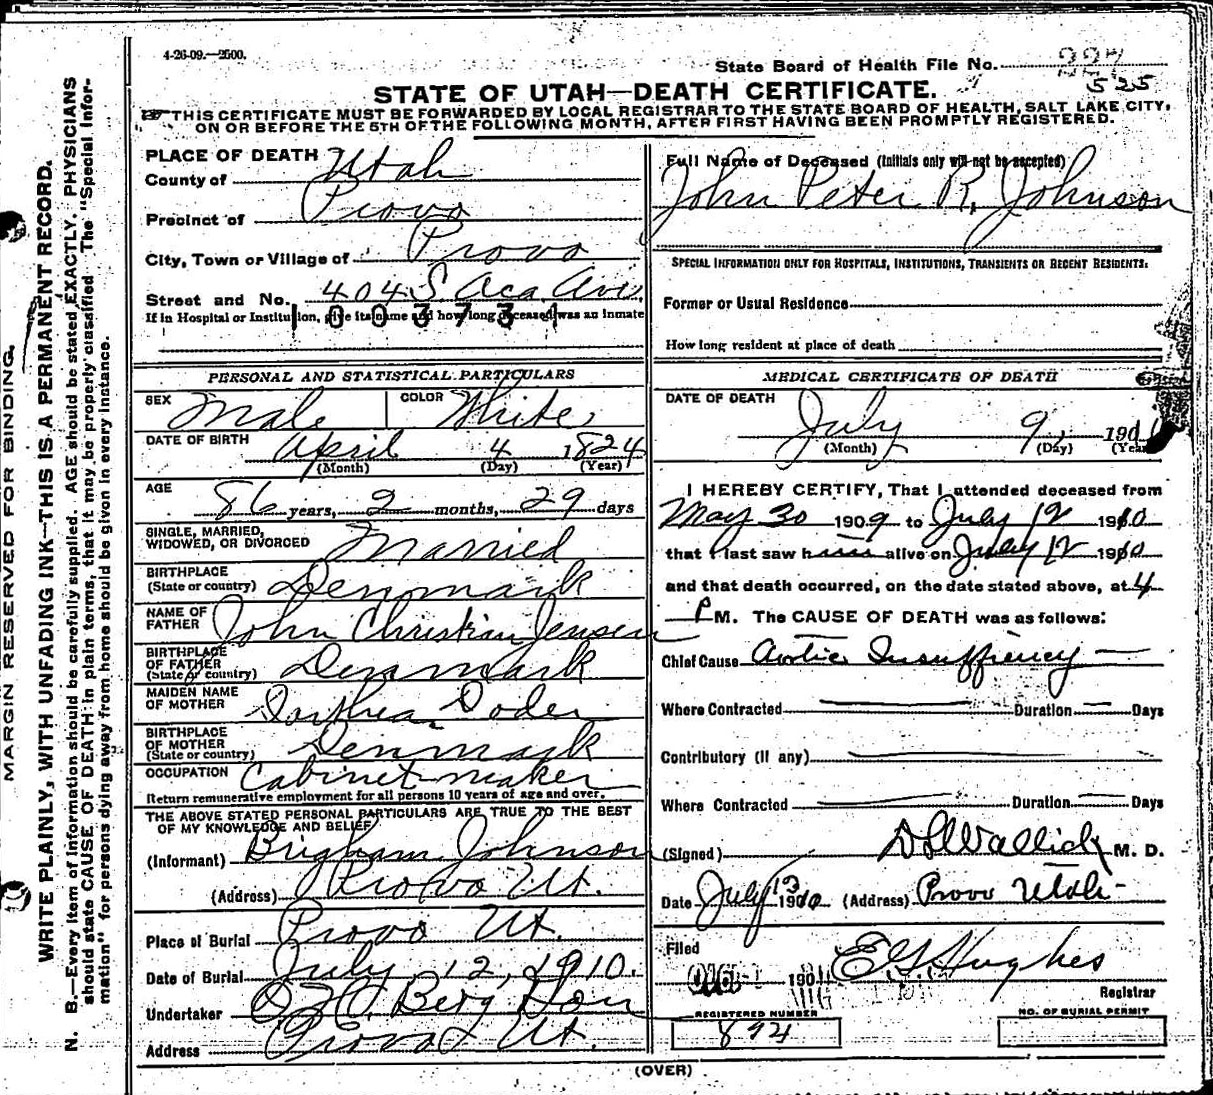 4-26-09.—2500.
State Board of Health File No.
525
STATE OF UTAH—DEATH CERTIFICATE.
THIS CERTIFICATE MUST BE FORWARDED BY LOCAL REGISTRAR TO THE STATE BOARD OF HEALTH, SALT LAKE CITY,
ON OR BEFORE THE 5TH OF THE FOLLOWING MONTH, AFTER FIRST HAVING BEEN PROMPTLY REGISTERED.
MARGIN RESERVED FOR BINDING.
WRITE PLAINLY, WITH UNFADING INK—THIS IS A PERMANENT RECORD.
N. B.—Every item of information should be carefully supplied. AGE should be stated EXACTLY. PHYSICIANS
should state CAUSE OF DEATH in plain terms, that it may be properly classified. The "Special Infor-
mation" for persons dying away from home should be given in every instance.
PLACE OF DEATH
County of Utah
Precinct of Provo
City, Town or Village of Provo
Street and No. 404 S Aca Ave.
If in Hospital or Institution, give its name and how long deceased was an inmate
1003731
PERSONAL AND STATISTICAL PARTICULARS
SEX Male COLOR White
DATE OF BIRTH April 4 1824
(Month) (Day) (Year)
AGE 86 years, 2 months, 29 days
SINGLE, MARRIED,
WIDOWED, OR DIVORCED Married
BIRTHPLACE
(State or country) Denmark
NAME OF
FATHER John Christian Jensen
BIRTHPLACE
OF FATHER
(State or country) Denmark
MAIDEN NAME
OF MOTHER Dorthea Doder
BIRTHPLACE
OF MOTHER
(State or country) Denmark
OCCUPATION Cabinet maker
Return remunerative employment for all persons 10 years of age and over.
THE ABOVE STATED PERSONAL PARTICULARS ARE TRUE TO THE BEST
OF MY KNOWLEDGE AND BELIEF
(Informant) Brigham Johnson
(Address) Provo Ut.
Place of Burial Provo Ut.
Date of Burial July 12, 1910.
Undertaker Berg Son
Address Provo Ut.
Full Name of Deceased (Initials only will not be accepted)
John Peter R. Johnson
SPECIAL INFORMATION ONLY FOR HOSPITALS, INSTITUTIONS, TRANSIENTS OR RECENT RESIDENTS.
Former or Usual Residence
How long resident at place of death
MEDICAL CERTIFICATE OF DEATH
DATE OF DEATH
July 9, 190
(Month) (Day) (Year)
I HEREBY CERTIFY, That I attended deceased from
May 30 1909 to July 12 1910
that I last saw him alive on July 12 1910
and that death occurred, on the date stated above, at 4
P M. The CAUSE OF DEATH was as follows:
Chief Cause Aortic Insuffiency
Where Contracted Duration Days
Contributory (if any)
Where Contracted Duration Days
(Signed) D L Wallick M. D.
Date July 13 1910 (Address) Provo Utah
Filed
190 E G Hughes
Registrar
REGISTERED NUMBER
894
NO. OF BURIAL PERMIT
(OVER)